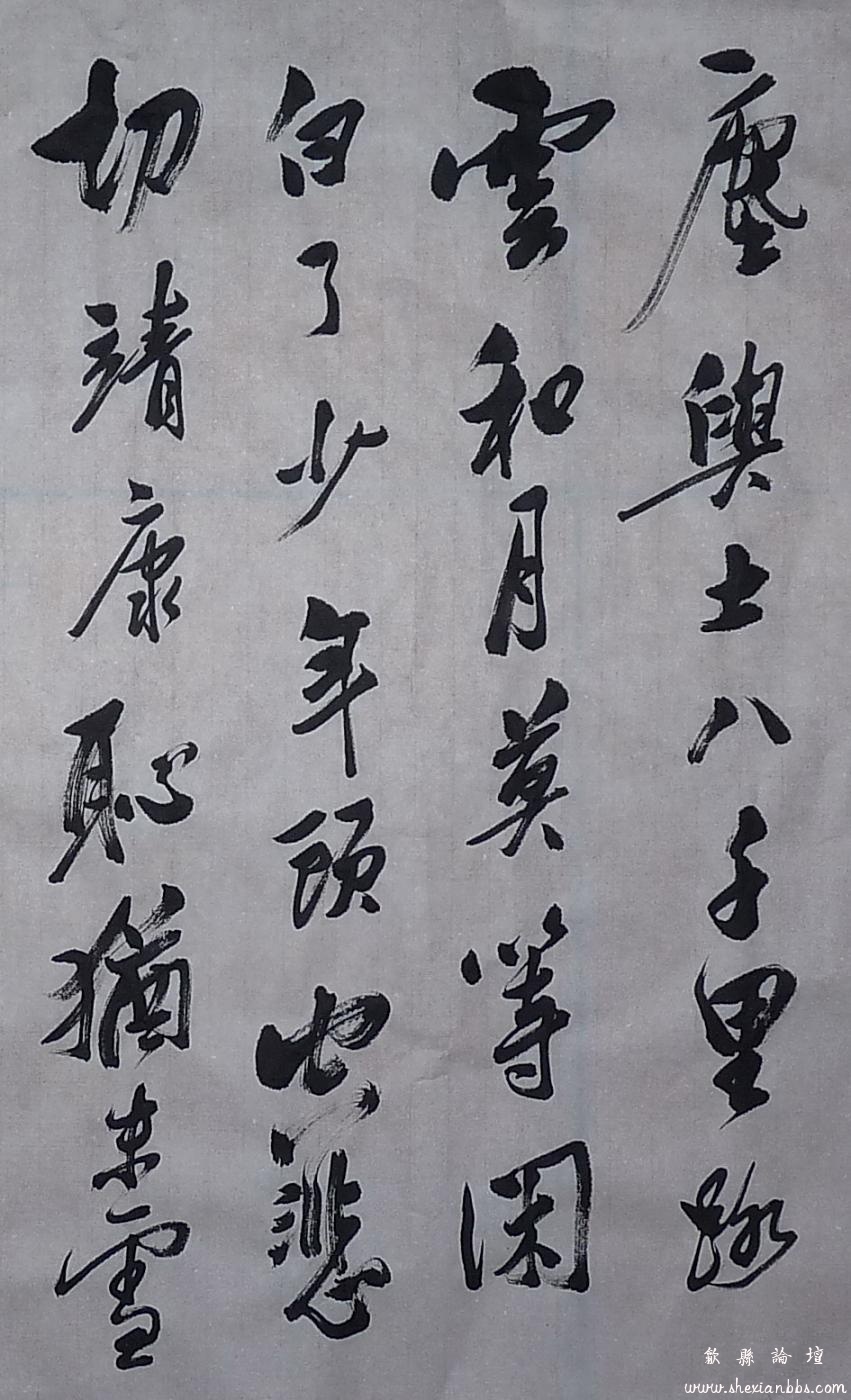 塵與土八千里路
雲和月莫等闲
白了少年頭空悲
切靖康恥猶未雪
歙縣論壇
www.shexianbbs.com